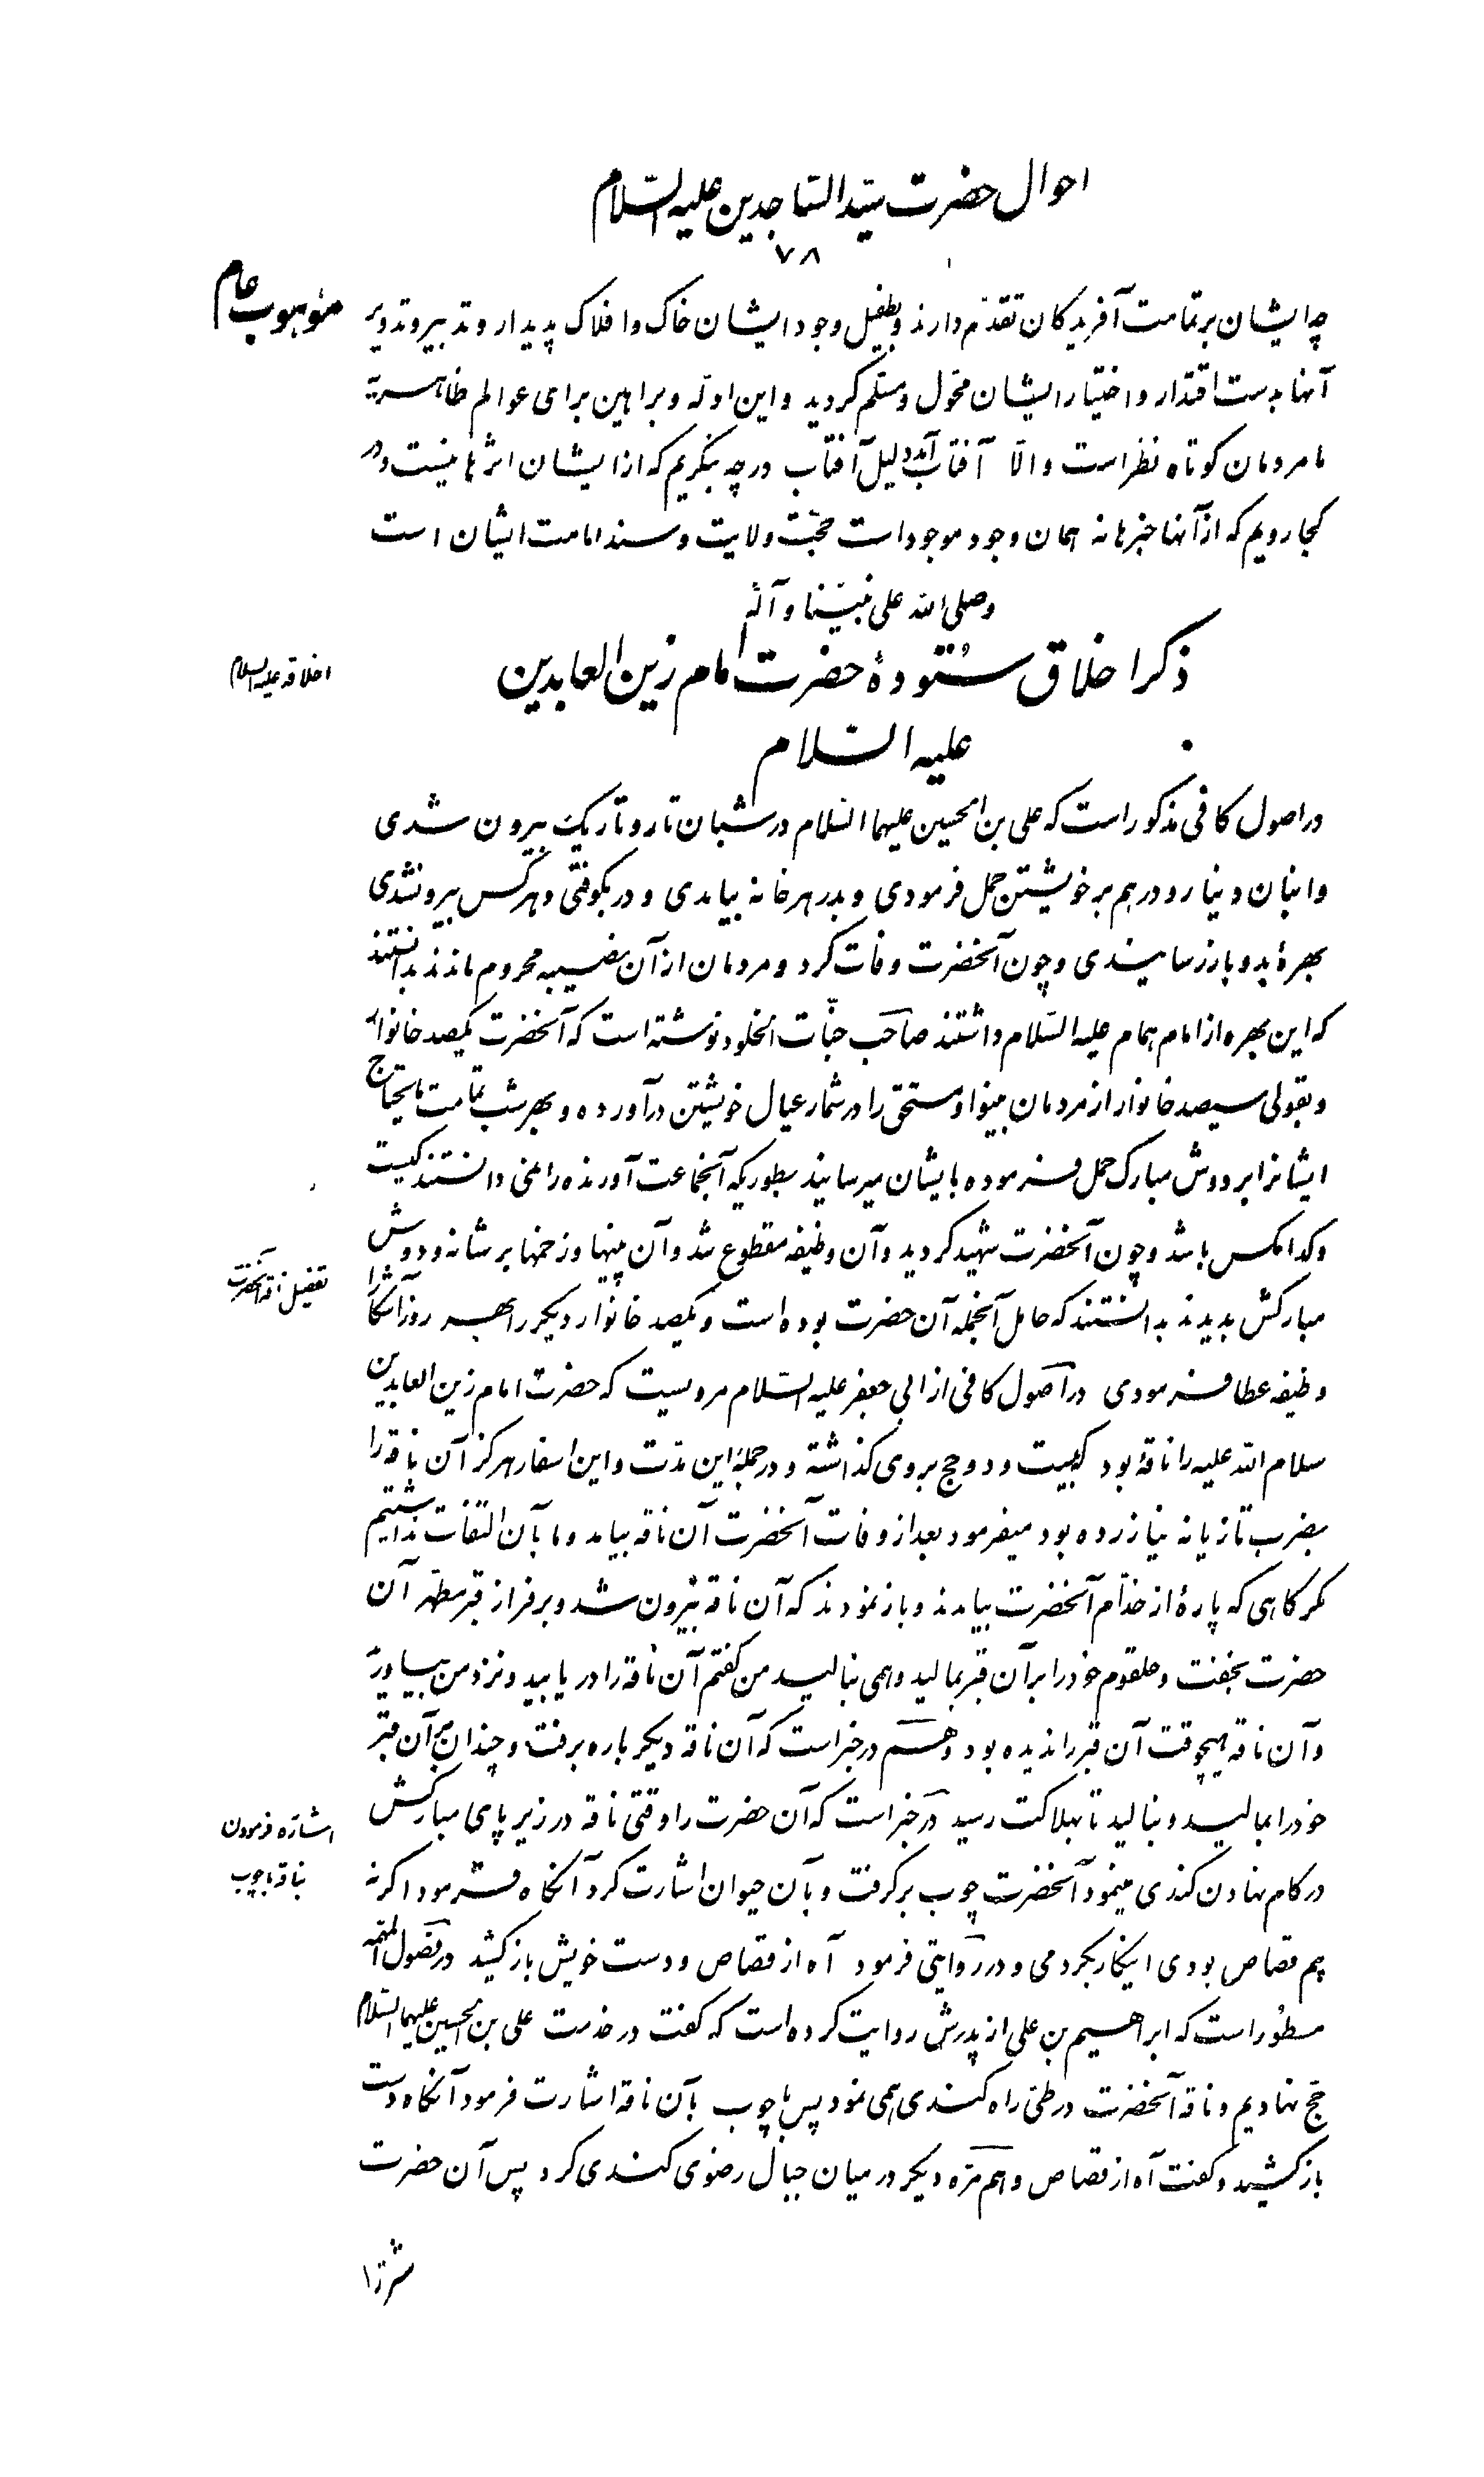 احوال حضرت سیّد السّاجدین علیه السّلام
۷۸
موهوب عام
چه ایشان بر تمامت آفریدکان تقدّم دارند و بطفیل وجود ایشان خاک و افلاک پدیدار و تدبیر و تدویر
آنها بدست اقتدار و اختیار ایشان محوّل و مسلّم کردید و این ادلّه و براهین برای عوالم ظاهریّهٔ
ما مردمان کوتاه نظر است و الّا آفتاب آمد دلیل آفتاب در چه بنکریم که از ایشان اثرها نیست و در
کجا رویم که از آنها خبرها نه همان وجود موجودات حجّت ولایت و سند امامت ایشان است
وصلی الله علی نبیّنا و آله
ذکر اخلاق ستودهٔ حضرت امام زین العابدین
اخلاقه علیه السلام
علیه السّلام
در اصول کافی مذکور است که علی بن الحسین علیهما السّلام در شبان تار و تاریک بیرون شدی
و انبان دینار و درهم بر خویشتن حمل فرمودی و بدر هر خانه بیامدی و در بکوفتی و هر کس بیرونشدی
بهرهٔ بدو باز رسانیدی و چون آنحضرت وفات کرد و مردمان از آن نصیبه محروم ماندند بدانستند
که این بهره از امام همام علیه السّلام داشتند صاحب جنّات الخلود نوشته است که آنحضرت یکصد خانوار
و بقولی سیصد خانوار از مردمان بینوا و مستحق را در شمار عیال خویشتن درآورده و بهر شب تمامت مایحتاج
ایشانرا بر دوش مبارک حمل فرموده بایشان میرسانید بطوریکه آنجماعت آورنده را نمی دانستند کیست
و کدامکس باشد و چون آنحضرت شهید کردید و آن وظیفه مقطوع شد و آن پینها و زخمها بر شانه و دوش
مبارکش بدیدند بدانستند که حامل آنجمله آن حضرت بوده است و یکصد خانوار دیکر را بهر روز آشکارا
تفصیل ناقه آنحضرت
وظیفه عطا فرمودی در اصول کافی از ابی جعفر علیه السّلام مرویست که حضرت امام زین العابدین
سلام الله علیه را ناقهٔ بود که بیست و دو حج بر وی کذاشته و در جملهٔ این مدّت و این اسفار هرکز آن ناقه را
بضرب تازیانه نیازرده بود میفرمود بعد از وفات آنحضرت آن ناقه بیامد و ما بآن التفات نداشتیم
مکر کاهی که پارهٔ از خدّام آنحضرت بیامدند و باز نمودند که آن ناقه بیرون شد و برفراز قبر مطهّر آن
حضرت بخفت و حلقوم خود را بر آن قبر بمالید و همی بنالید من کفتم آن ناقه را دریابید و نزد من بیاورید
و آن ناقه هیچوقت آن قبر را ندیده بود و هم در خبر است که آن ناقه دیکر باره برفت و چندان بر آن قبر
خود را بمالید و بنالید تا بهلاکت رسید در خبر است که آن حضرت را وقتی ناقه در زیر پای مبارکش
اشاره فرمودن
بناقه با چوب
در کام نهادن کندی مینمود آنحضرت چوب برکرفت و بآن حیوان اشارت کرد آنکاه فرمود اکر نه
بیم قصاص بودی اینکار بکردمی و در روایتی فرمود آه از قصاص و دست خویش باز کشید در فصول المهمّه
مسطور است که ابراهیم بن علی از پدرش روایت کرده است که کفت در خدمت علی بن الحسین علیهما السّلام
حج نهادیم و ناقه آنحضرت در طیّ راه کندی همی نمود پس با چوب بآن ناقه اشارت فرمود آنکاه دست
باز کشید و کفت آه از قصاص و هم مرّه دیکر در میان جبال رضوی کندی کرد پس آن حضرت